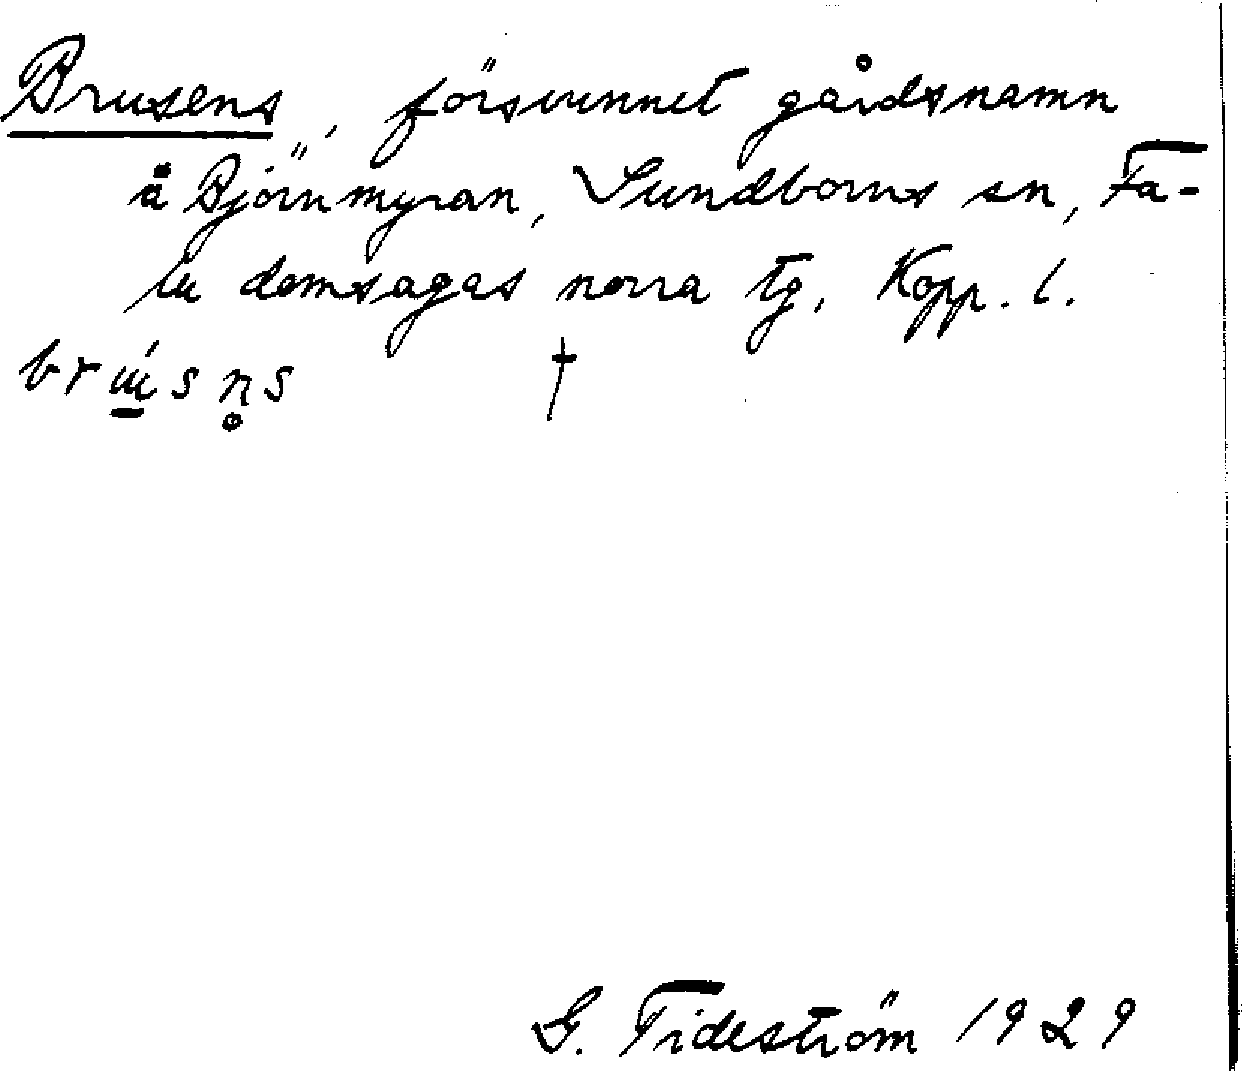 Brusens, försvunnet gårdsnamn
å Björnmyran, Sundborns sn, Fa-
lu domsagas norra tg, Kopp. l.
brɯ̠́sn̥s †
G. Tideström 1929